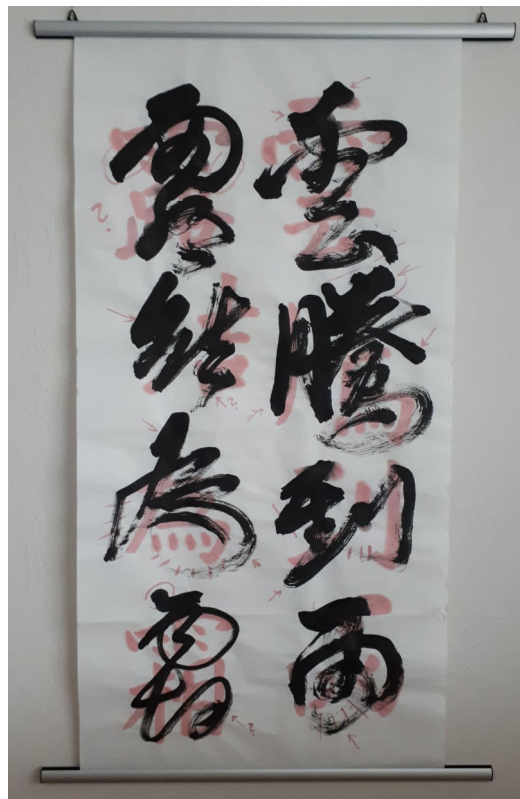 雲騰到雨
露結為霜